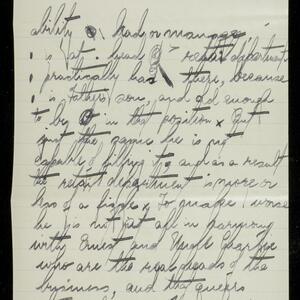 ability or had son manage
is at head of retail department
practically has there, because
is Father's son, and old enough
to be in that position x But
just the same he is not
capable of filling it and as a result
the retail department is more or
less of a fizzle x to make it worse
he is not just all in harmony
with Ernest and Uncle Charlie
who are the real heads of the
business, and that queers